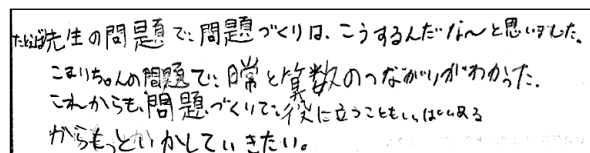 たとえば先生の問題で、問題づくりは、こうするんだな〜と思いました。
こまりちゃんの問題で、日常と算数のつながりがわかった。
これからも、問題づくりで、役に立つこともいっぱいある
からもっといかしていきたい。